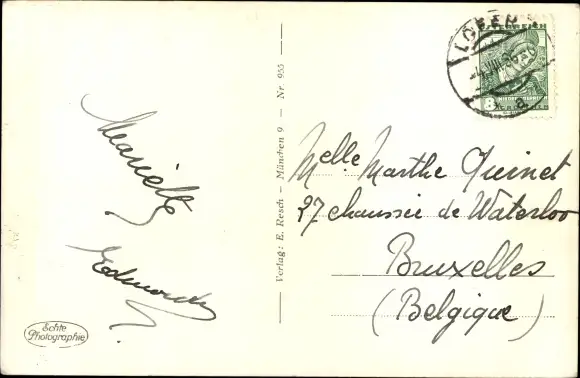 Mariette
Edmonds
Echte
Photographie
Verlag: E. Resch — München 9 — Nr. 955
LOFER
ÖSTERREICH
8
Melle Marthe Quinet
27 chaussée de Waterloo
Bruxelles
(Belgique)